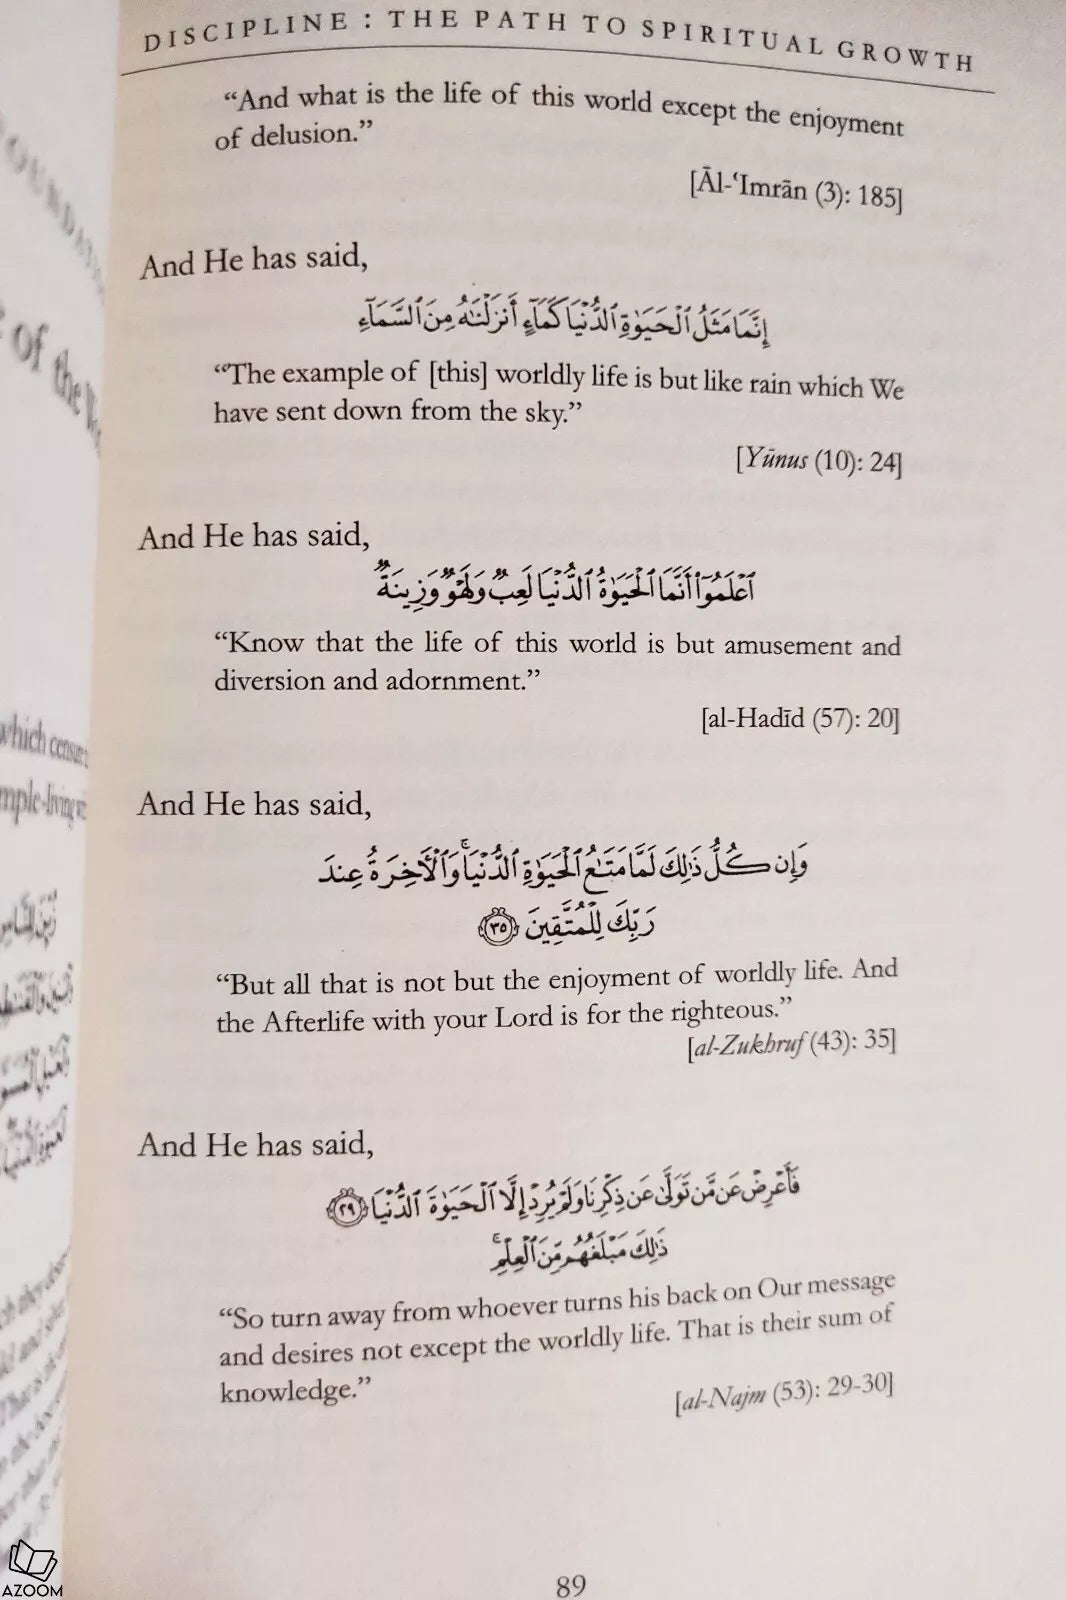 DISCIPLINE : THE PATH TO SPIRITUAL GROWTH
“And what is the life of this world except the enjoyment
of delusion.”
[Āl-‘Imrān (3): 185]
And He has said,
إِنَّمَا مَثَلُ ٱلْحَيَوٰةِ ٱلدُّنْيَا كَمَآءٍ أَنزَلْنَٰهُ مِنَ ٱلسَّمَآءِ
“The example of [this] worldly life is but like rain which We
have sent down from the sky.”
[Yūnus (10): 24]
And He has said,
ٱعْلَمُوٓا۟ أَنَّمَا ٱلْحَيَوٰةُ ٱلدُّنْيَا لَعِبٌ وَلَهْوٌ وَزِينَةٌ
“Know that the life of this world is but amusement and
diversion and adornment.”
[al-Hadīd (57): 20]
And He has said,
وَإِن كُلُّ ذَٰلِكَ لَمَّا مَتَٰعُ ٱلْحَيَوٰةِ ٱلدُّنْيَا ۚ وَٱلْءَاخِرَةُ عِندَ
رَبِّكَ لِلْمُتَّقِينَ ٣٥
“But all that is not but the enjoyment of worldly life. And
the Afterlife with your Lord is for the righteous.”
[al-Zukhruf (43): 35]
And He has said,
فَأَعْرِضْ عَن مَّن تَوَلَّىٰ عَن ذِكْرِنَا وَلَمْ يُرِدْ إِلَّا ٱلْحَيَوٰةَ ٱلدُّنْيَا ٢٩
ذَٰلِكَ مَبْلَغُهُم مِّنَ ٱلْعِلْمِ ۚ
“So turn away from whoever turns his back on Our message
and desires not except the worldly life. That is their sum of
knowledge.”
[al-Najm (53): 29-30]
89
of the
which
AZOOM